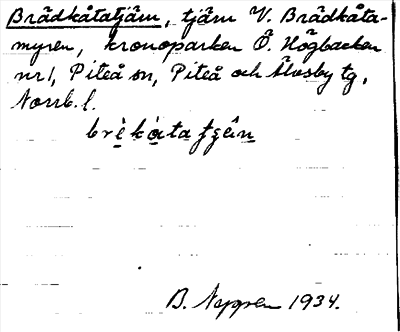 Brädkåtatjärn, tjärn V. Brädkåta-
myren, kronoparken Ö. Högbacken
nr 1, Piteå sn, Piteå och Älvsby tg,
Norrb. l.
brèkåtatjæ̂n
B. Nappren 1934.